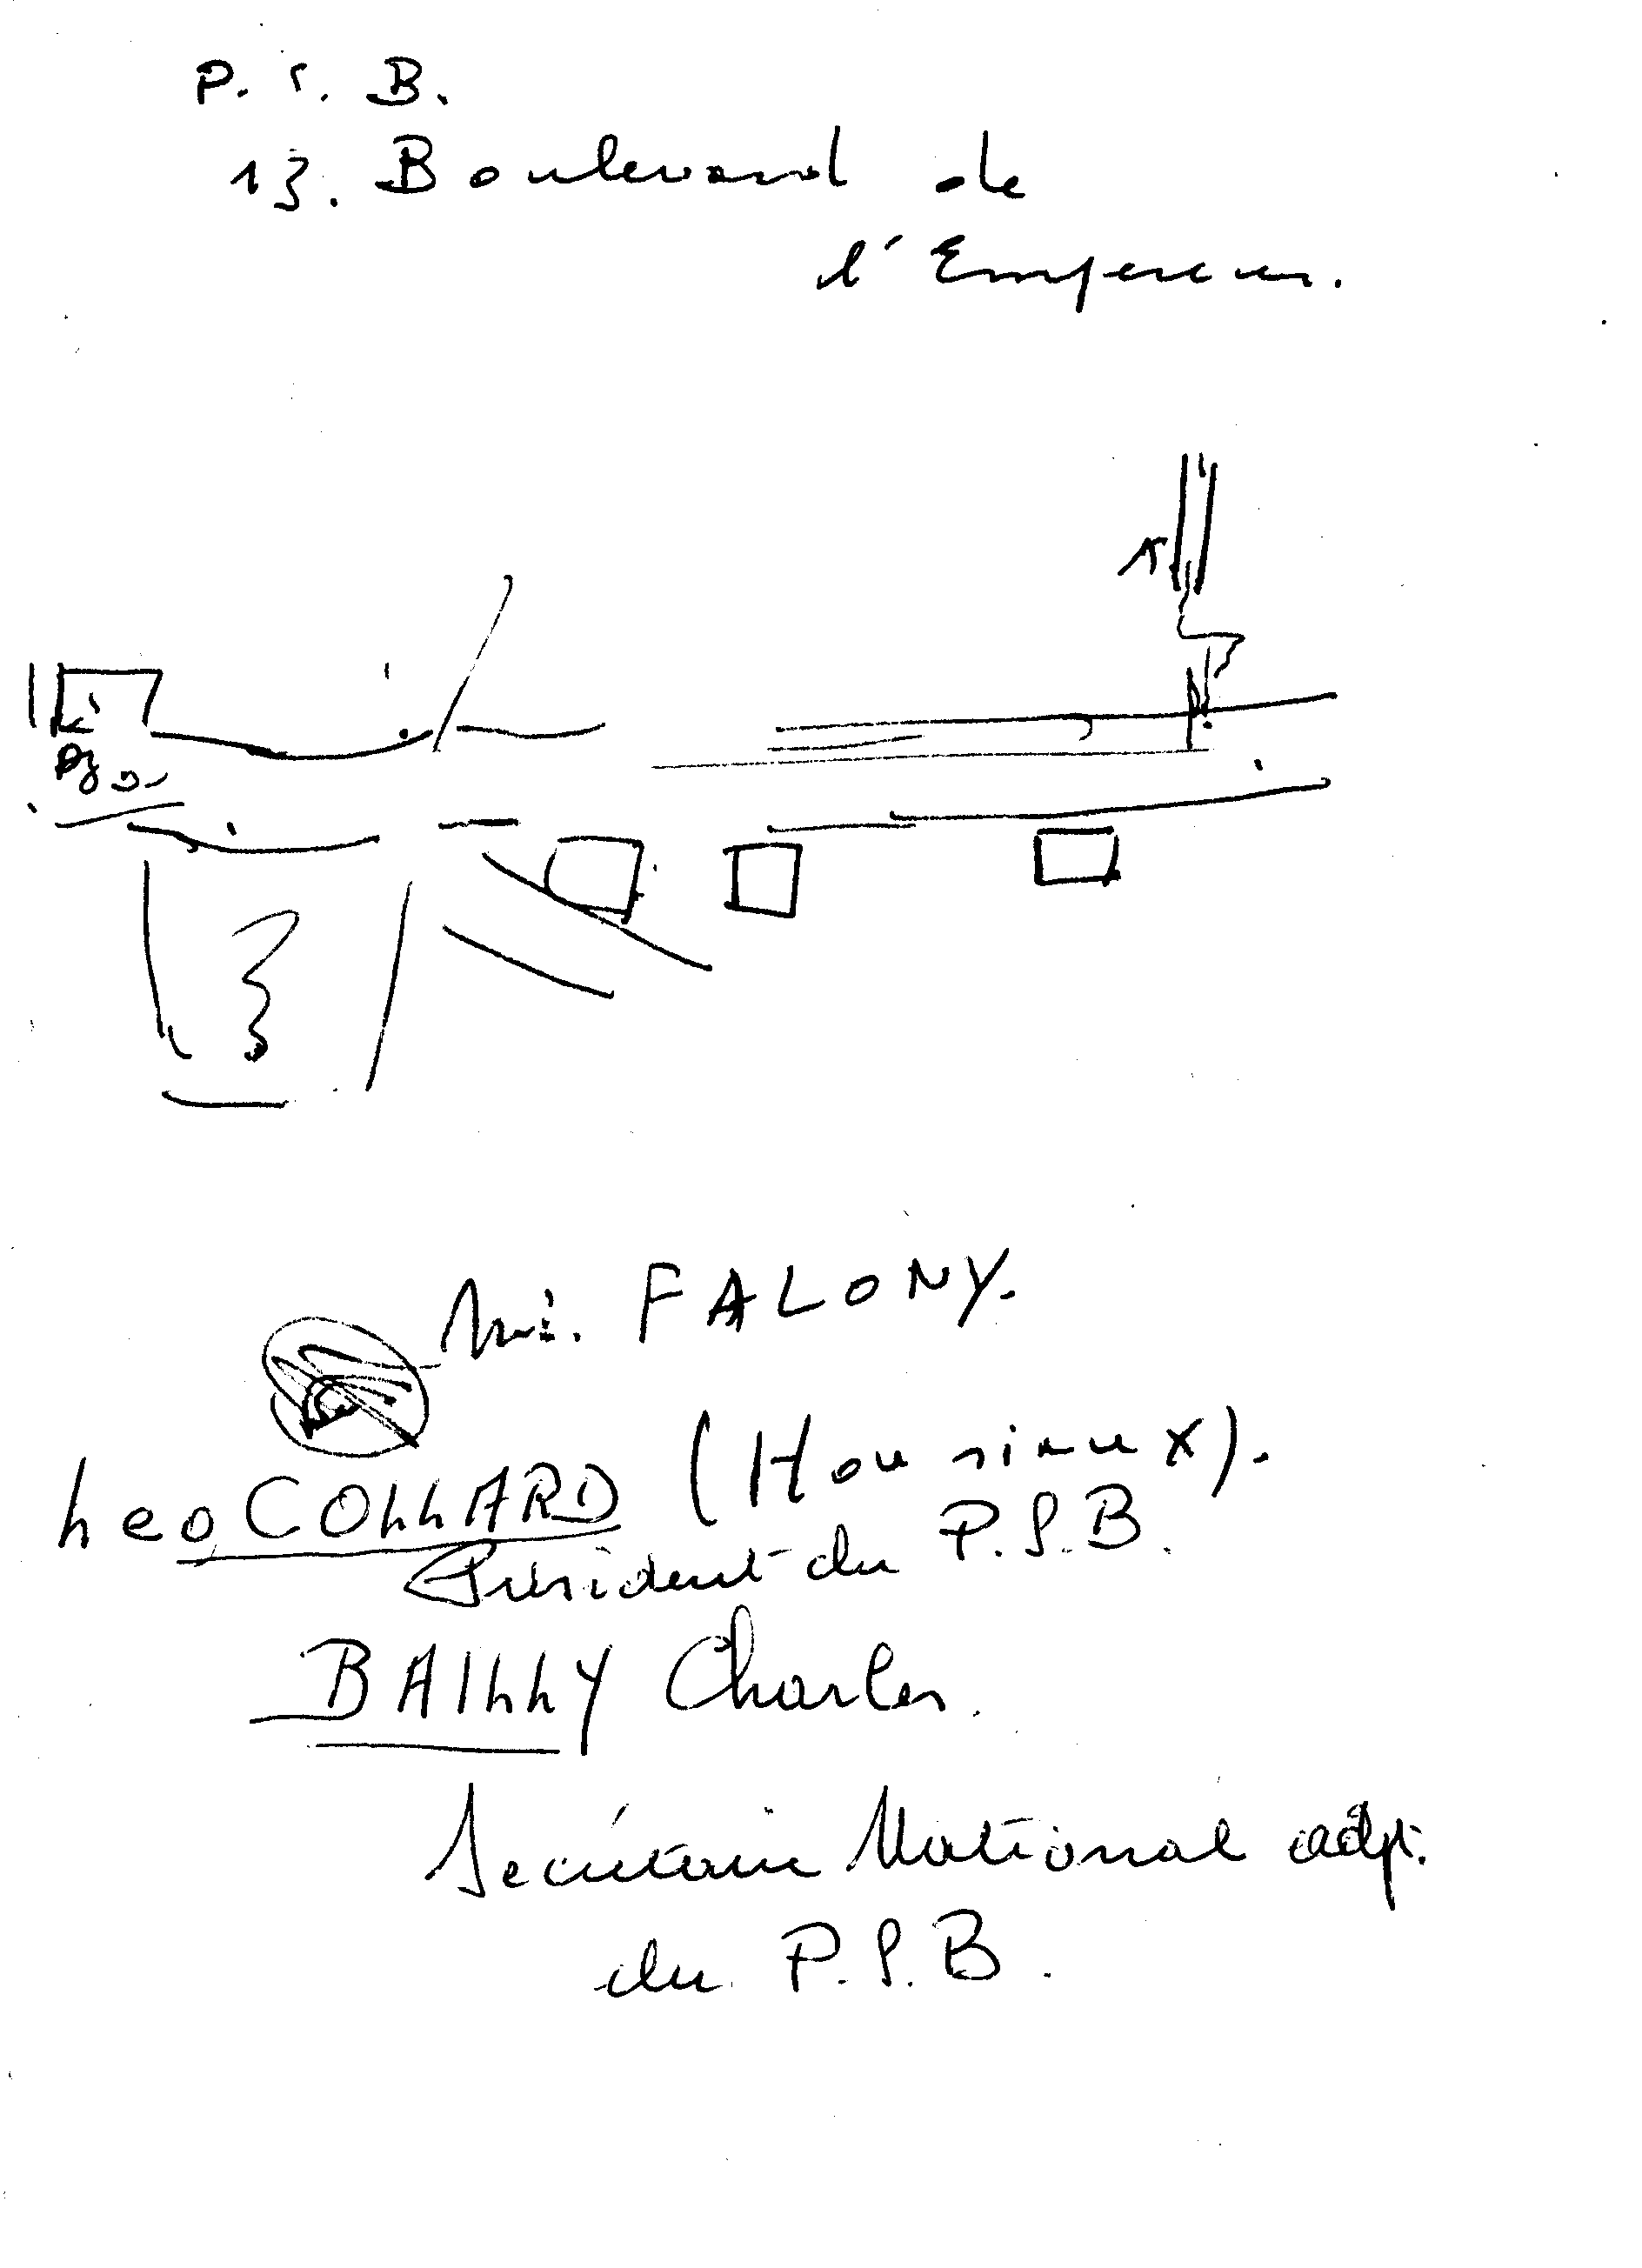 P. S. B.
13. Boulevard de
l'Empereur.
FALONY.
Leo COLLARD (Housiaux).
Président du P.S.B.
BAILLY Charles.
Secrétaire National adj.
du P.S.B.